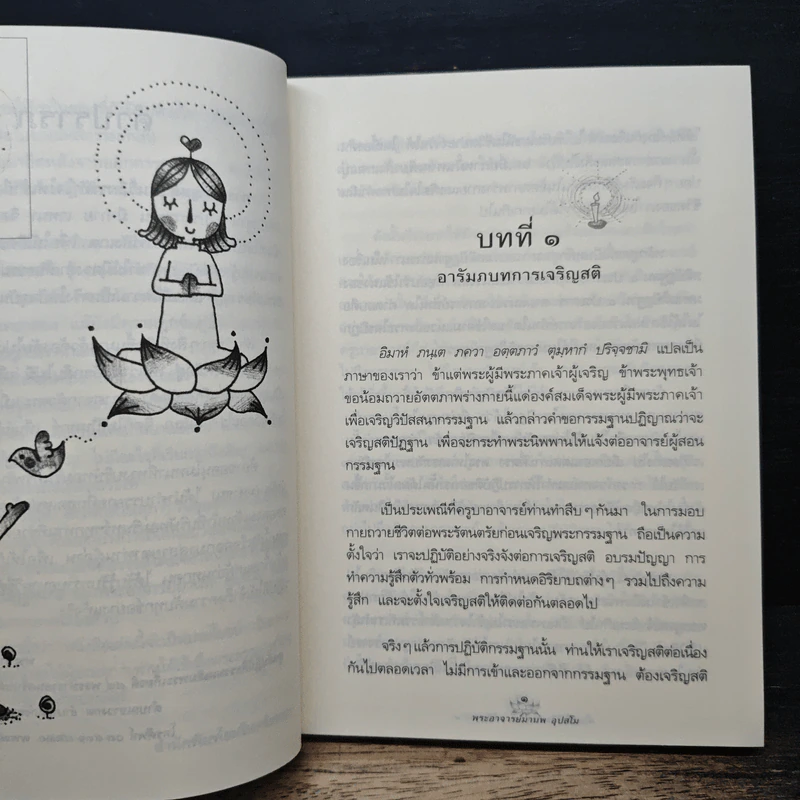 บทที่ ๑
อารัมภบทการเจริญสติ
อิมาหํ ภนฺเต ภควา อตฺตภาวํ ตุมฺหากํ ปริจฺจชามิ แปลเป็น
ภาษาของเราว่า ข้าแต่พระผู้มีพระภาคเจ้าผู้เจริญ ข้าพระพุทธเจ้า
ขอน้อมถวายอัตตภาพร่างกายนี้แด่องค์สมเด็จพระผู้มีพระภาคเจ้า
เพื่อเจริญวิปัสสนากรรมฐาน แล้วกล่าวคำขอกรรมฐานปฏิญาณว่าจะ
เจริญสติปัฏฐาน เพื่อจะกระทำพระนิพพานให้แจ้งต่ออาจารย์ผู้สอน
กรรมฐาน
เป็นประเพณีที่ครูบาอาจารย์ท่านทำสืบๆ กันมา ในการมอบ
กายถวายชีวิตต่อพระรัตนตรัยก่อนเจริญพระกรรมฐาน ถือเป็นความ
ตั้งใจว่า เราจะปฏิบัติอย่างจริงจังต่อการเจริญสติ อบรมปัญญา การ
ทำความรู้สึกตัวทั่วพร้อม การกำหนดอิริยาบถต่างๆ รวมไปถึงความ
รู้สึก และจะตั้งใจเจริญสติให้ติดต่อกันตลอดไป
จริงๆ แล้วการปฏิบัติกรรมฐานนั้น ท่านให้เราเจริญสติต่อเนื่อง
กันไปตลอดเวลา ไม่มีการเข้าและออกจากกรรมฐาน ต้องเจริญสติ
๑
พระอาจารย์มานพ อุปสโม